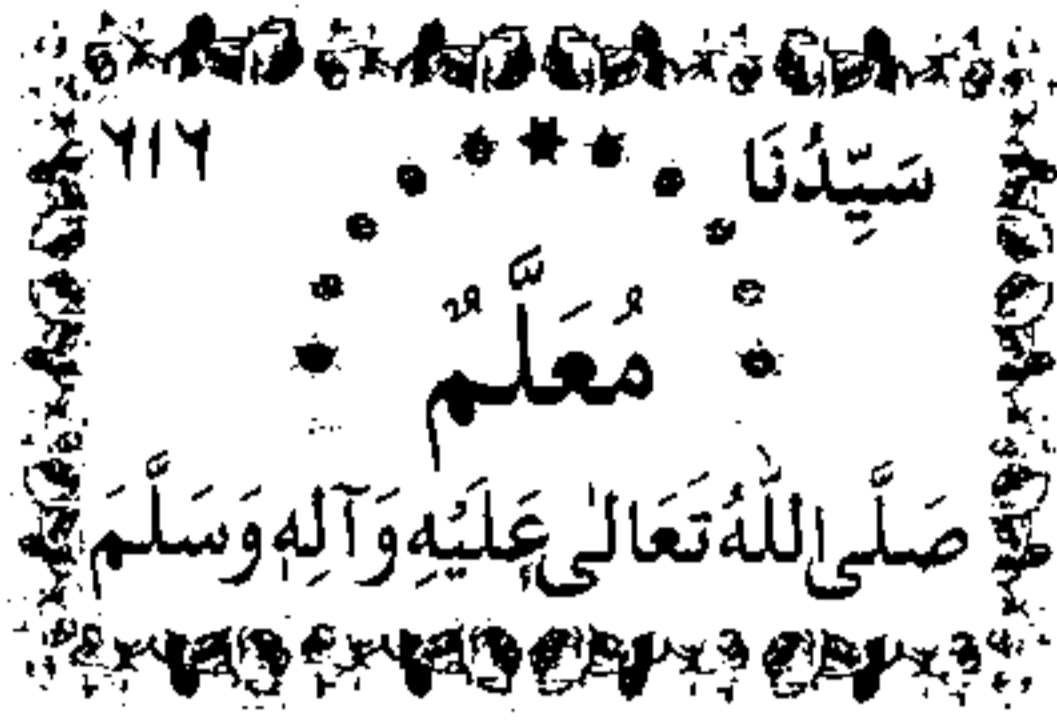 سَيِّدُنَا ٢١٢
مُعَلَّمٌ
صَلَّى اللّٰهُ تَعَالٰى عَلَيْهِ وَآلِهٖ وَسَلَّمَ